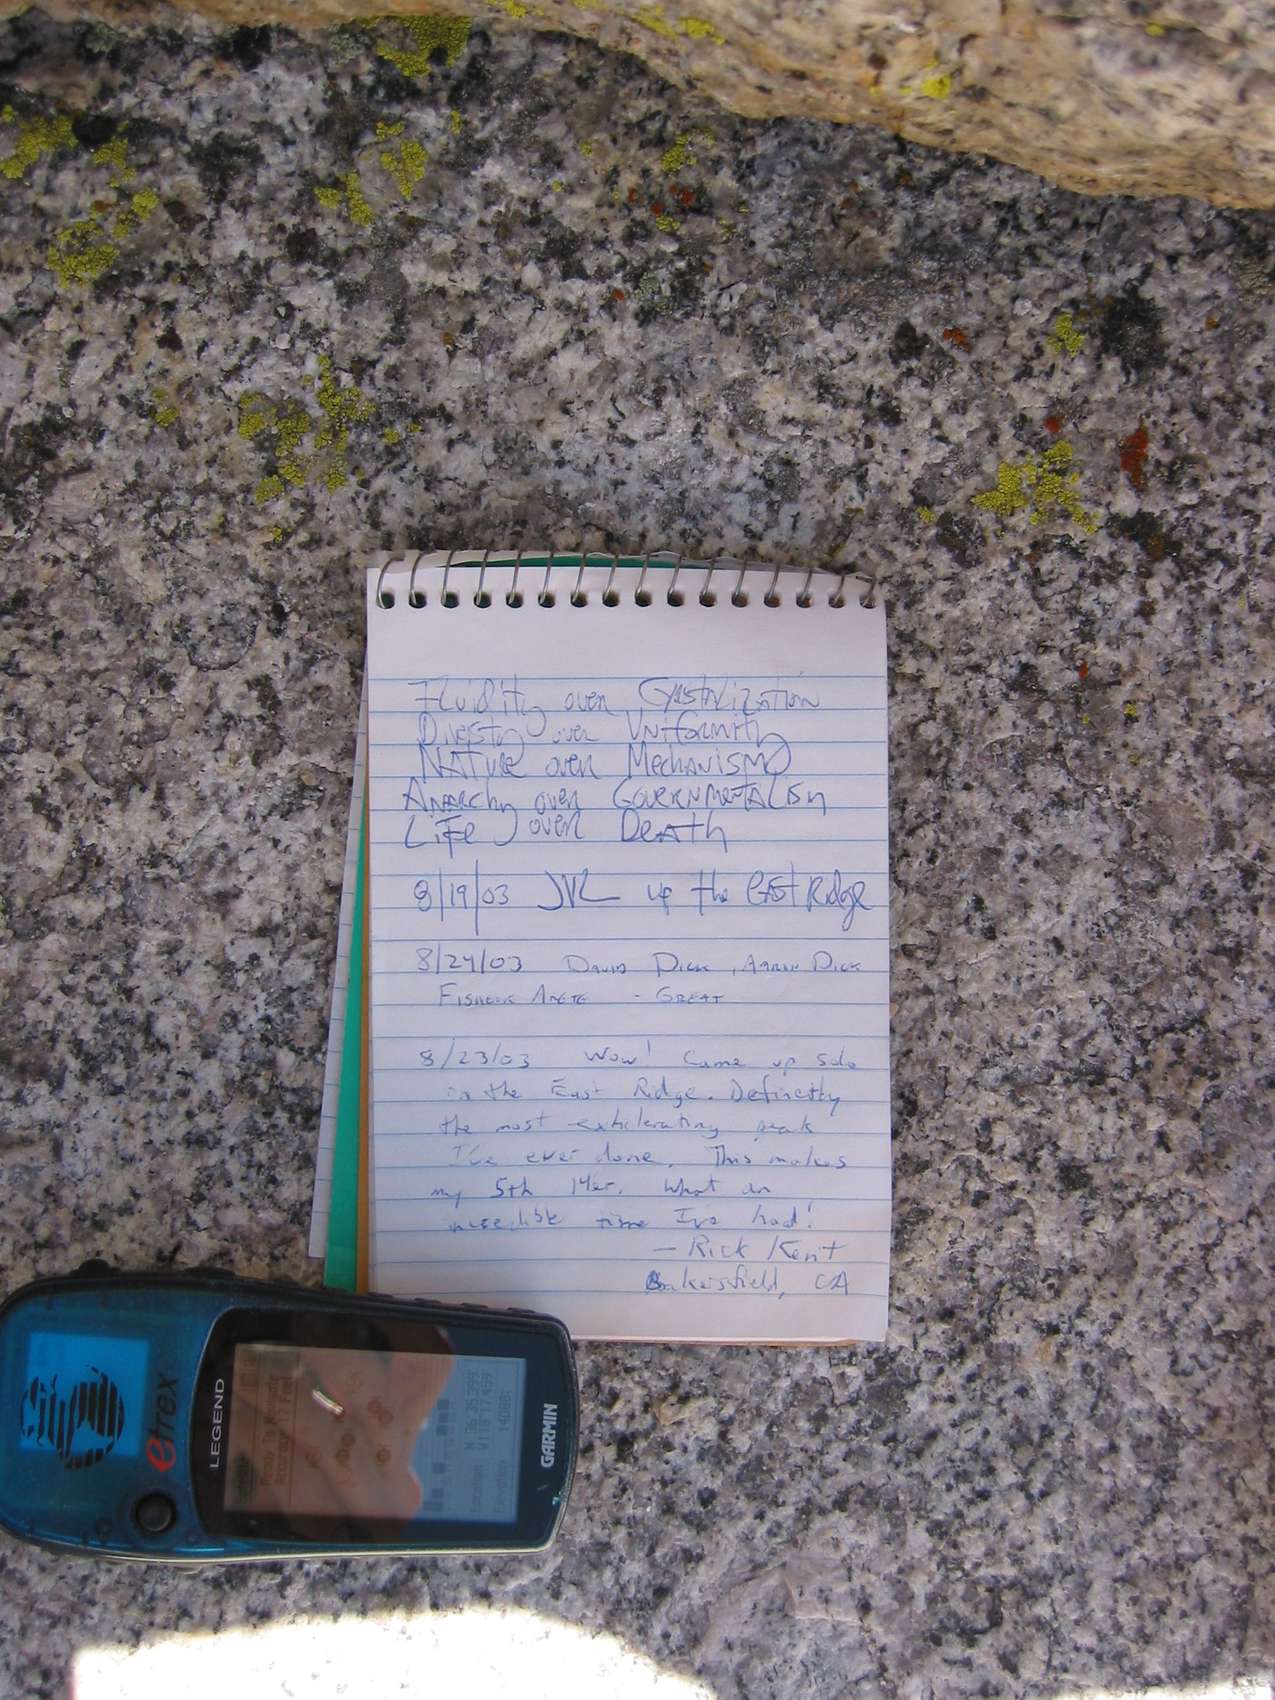 Fluidity over Crystalization
Diversty over Uniformity
Nature over Mechanism
Anarchy over Governmentalism
Life over Death
8/19/03 JVL up the East Ridge
8/24/03 David Dick, Aaron Dick
Fishhook Arete - Great
8/23/03 Wow! Came up solo
in the East Ridge. Definetly
the most exhilerating peak
I've ever done. This makes
my 5th 14er. What an
incredible time I've had!
— Rick Kent
Bakersfield, CA
etrex
LEGEND
GARMIN
Ready To Navigate
Accuracy: 17 feet
Location
N 36 35.395
Elevation